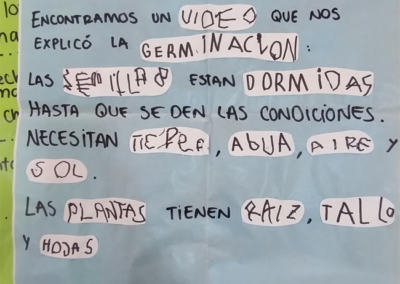 lo
na
ENCONTRAMOS UN VIDEO QUE NOS
EXPLICÓ LA GERMINACION:
LAS SEMILLAS ESTAN DORMIDAS
HASTA QUE SE DEN LAS CONDICIONES.
NECESITAN TIERRE, AGUA, AIRE Y
SOL.
LAS PLANTAS TIENEN RAIZ, TALLO
Y HOJAS